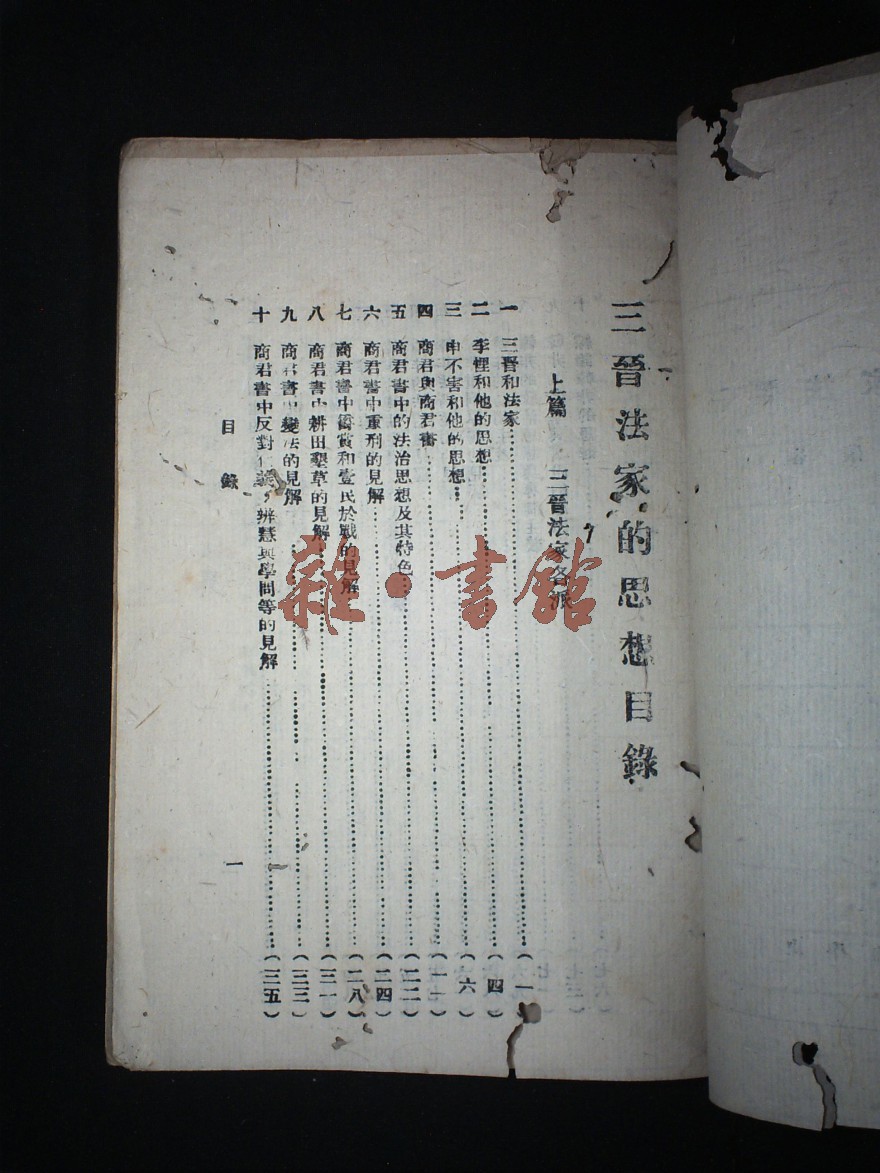 三晉法家的思想目錄
上篇 三晉法家各派
一 三晉和法家……(一)
二 李悝和他的思想……(四)
三 申不害和他的思想……(六)
四 商君與商君書……(一一)
五 商君書中的法治思想及其特色……(二二)
六 商君書中重刑的見解……(二四)
七 商君書中賞和壹民於戰的見解……(二八)
八 商君書中耕田墾草的見解……(三一)
九 商君書中變法的見解……(三三)
十 商君書中反對仁義,辨慧與學問等的見解……(三五)
目錄
一
雜·書館